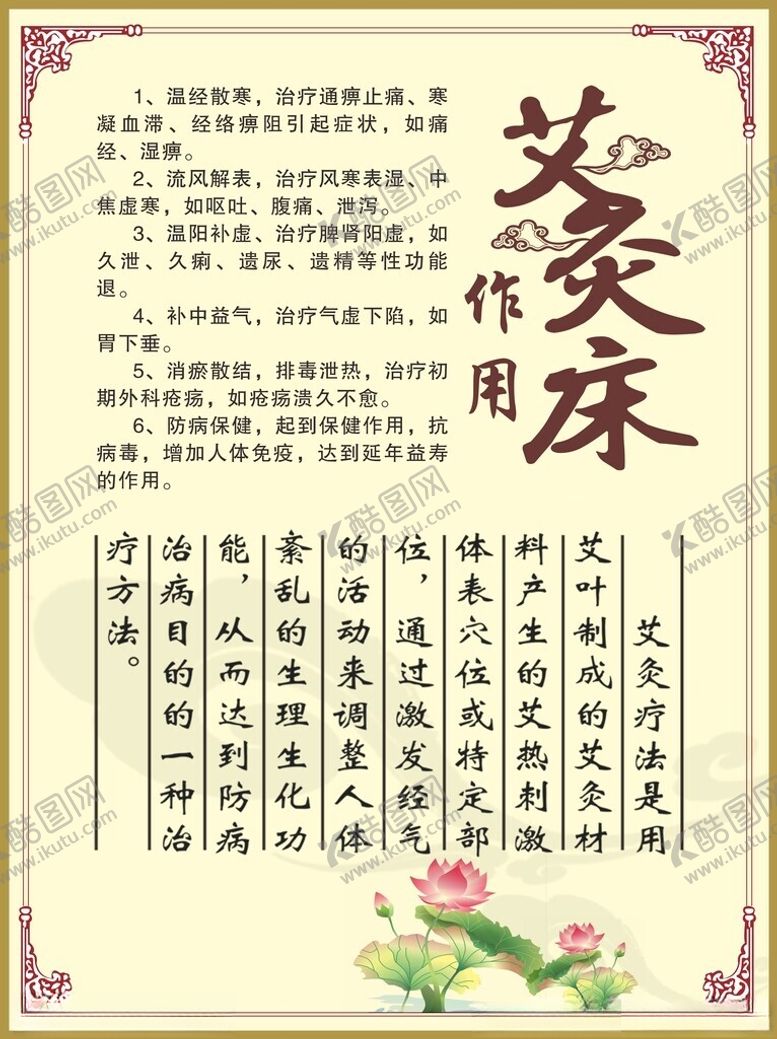 艾灸床
作用
1、温经散寒，治疗通痹止痛、寒
凝血滞、经络痹阻引起症状，如痛
经、湿痹。
2、流风解表，治疗风寒表湿、中
焦虚寒，如呕吐、腹痛、泄泻。
3、温阳补虚、治疗脾肾阳虚，如
久泄、久痢、遗尿、遗精等性功能
退。
4、补中益气，治疗气虚下陷，如
胃下垂。
5、消瘀散结，排毒泄热，治疗初
期外科疮疡，如疮疡溃久不愈。
6、防病保健，起到保健作用，抗
病毒，增加人体免疫，达到延年益寿
的作用。
艾灸疗法是用
艾叶制成的艾灸材
料产生的艾热刺激
体表穴位或特定部
位，通过激发经气
的活动来调整人体
紊乱的生理生化功
能，从而达到防病
治病目的的一种治
疗方法。
酷图网
www.ikutu.com